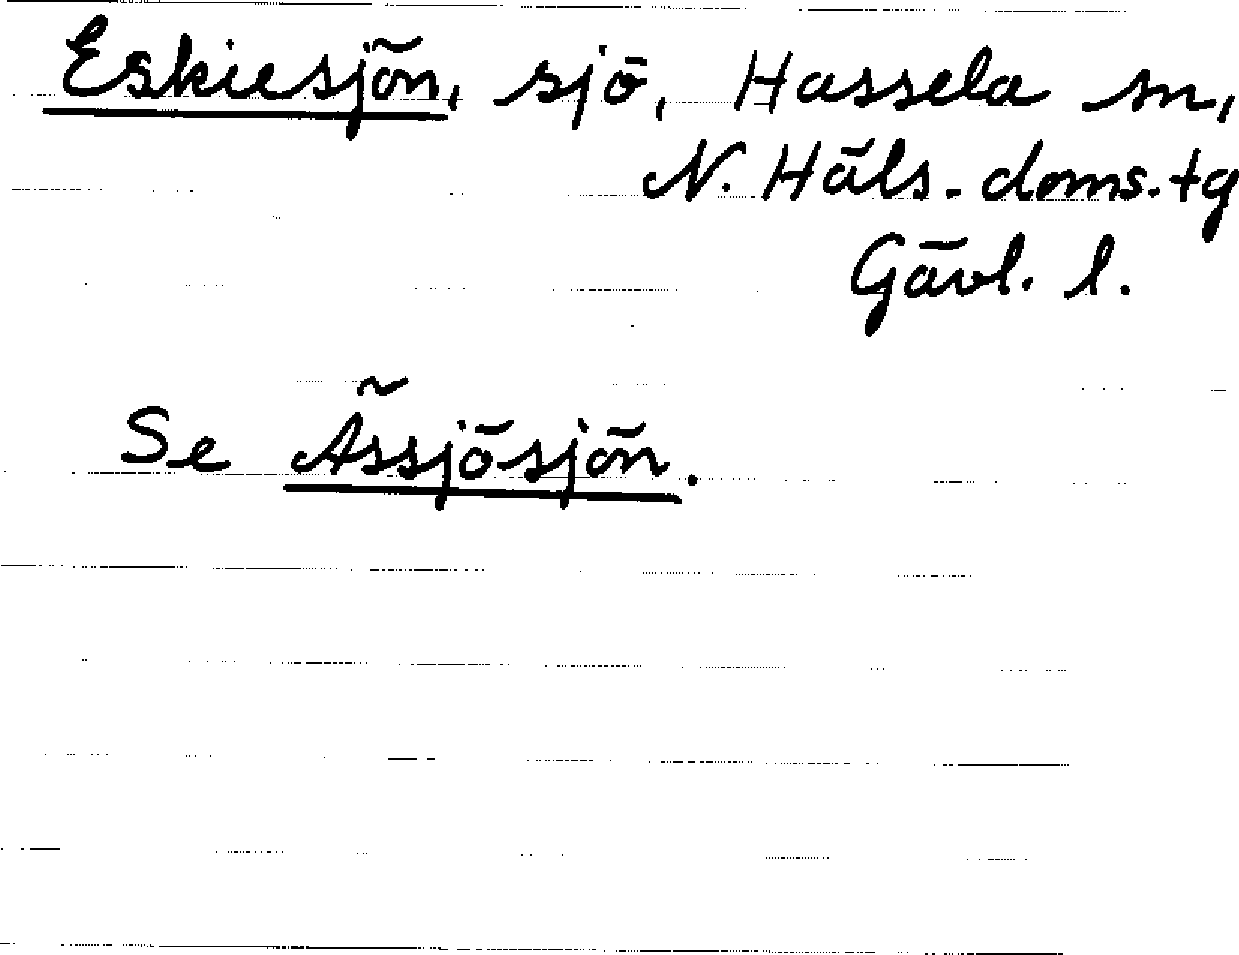 Eskiesjön, sjö, Hassela sn,
N. Häls. doms. tg
Gävl. l.
Se Ässjösjön.